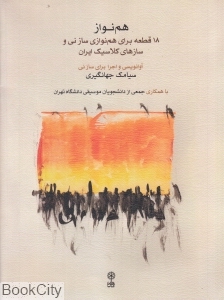 هم‌نواز
۱۸ قطعه برای هم‌نوازی ساز نی و
سازهای کلاسیک ایران
آوانویسی و اجرا برای ساز نی
سیامک جهانگیری
با همکاری جمعی از دانشجویان موسیقی دانشگاه تهران
BookCity